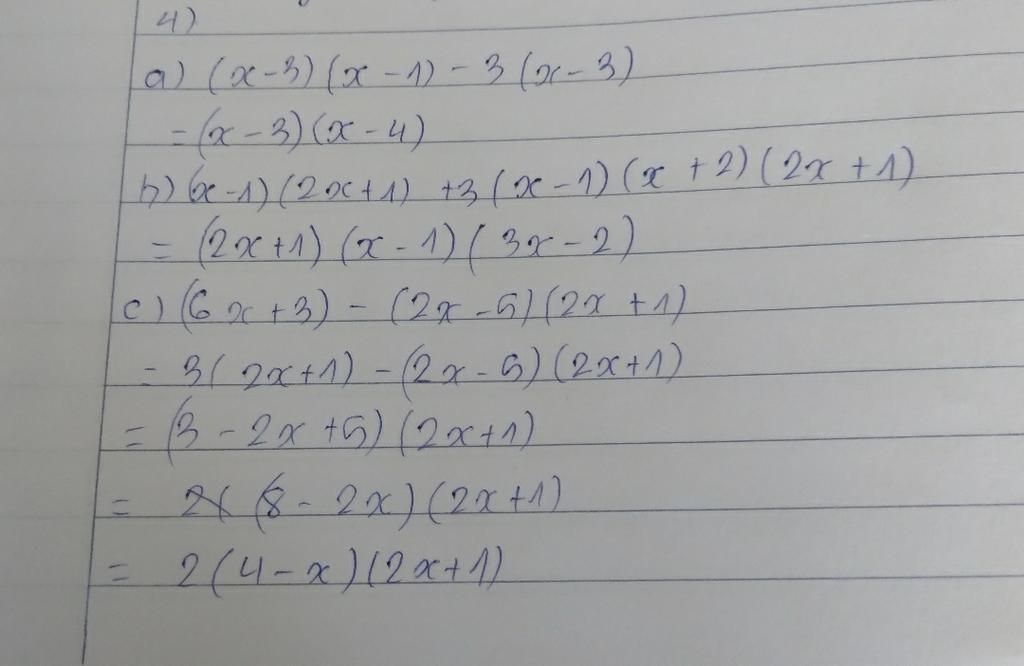 4)
a) (x-3)(x-1)-3(x-3)
=(x-3)(x-4)
b) (x-1)(2x+1)+3(x-1)(x+2)(2x+1)
= (2x+1)(x-1)(3x-2)
c) (6x+3)-(2x-5)(2x+1)
= 3(2x+1)-(2x-5)(2x+1)
= (3-2x+5)(2x+1)
= (8-2x)(2x+1)
= 2(4-x)(2x+1)